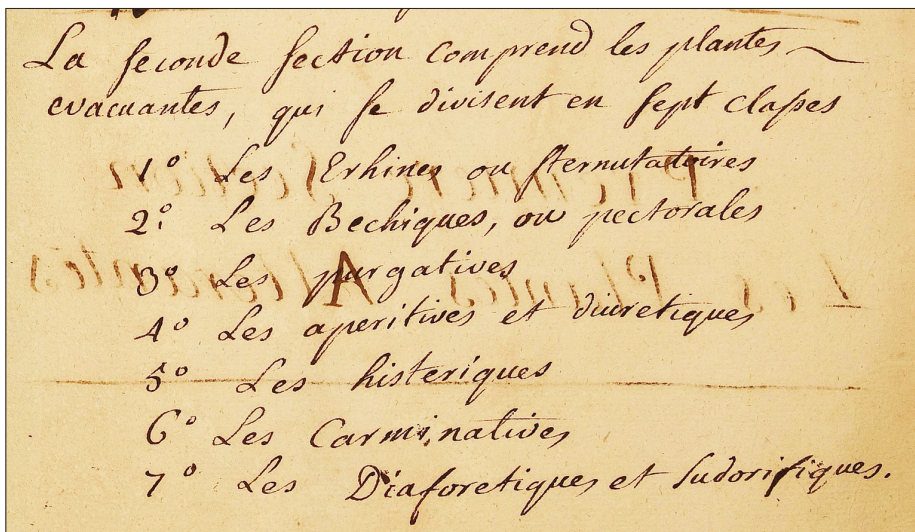 La seconde section comprend les plantes
evacuantes, qui se divisent en sept classes
1° Les Erhines ou sternutatoires
2° Les Bechiques, ou pectorales
3° Les purgatives
4° Les aperitives et diuretiques
5° Les histeriques
6° Les Carminatives
7° Les Diaforetiques et sudorifiques.